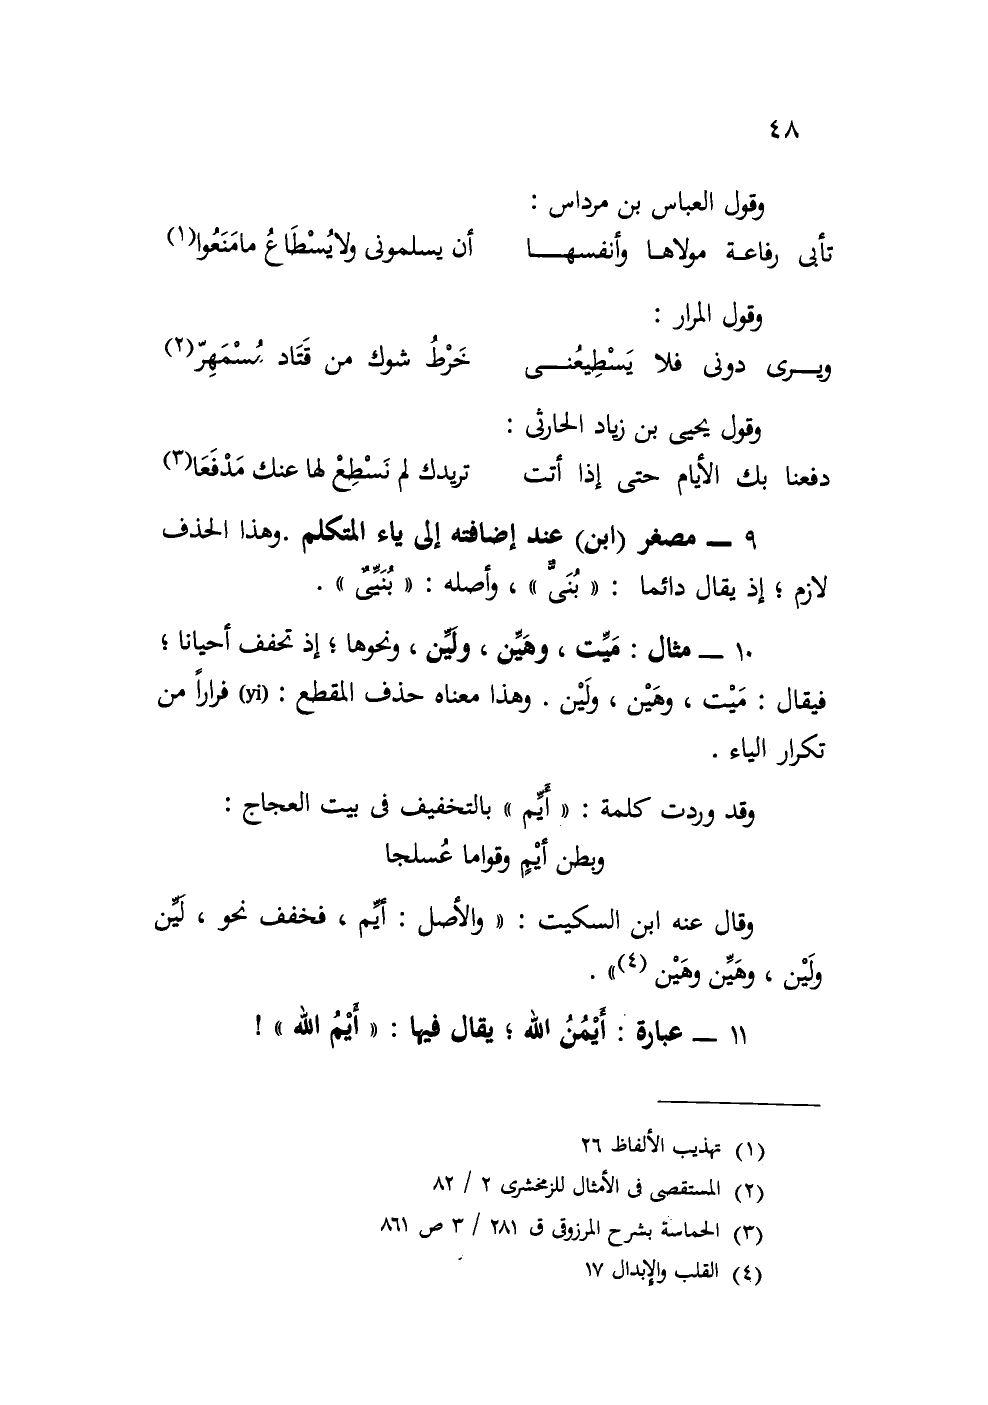 ٤٨
وقول العباس بن مرداس :
تأبى رفاعـة مولاهـا وأنفسهــا أن يسلمونى ولايُسْطَاعُ مامَنَعُوا(١)
وقول المرار :
ويــرى دونى فلا يَسْطِيعُنــى خَرْطُ شوك من قَتَاد مُسْمَهِرّ(٢)
وقول يحيى بن زياد الحارثى :
دفعنا بك الأيام حتى إذا أتت تريدك لم نَسْطِعْ لها عنك مَدْفَعَا(٣)
٩ ــ مصغر (ابن) عند إضافته إلى ياء المتكلم .وهذا الحذف
لازم ؛ إذ يقال دائما : « بُنَىٌّ » ، وأصله : « بُنَيِّىٌ » .
١٠ ــ مثال : مَيِّت ، وهَيِّن ، ولَيِّن ، ونحوها ؛ إذ تخفف أحيانا ؛
فيقال : مَيْت ، وهَيْن ، ولَيْن . وهذا معناه حذف المقطع : (yi) فراراً من
تكرار الياء .
وقد وردت كلمة : « أَيِّم » بالتخفيف فى بيت العجاج :
وبطن أيْمٍ وقواما عُسلجا
وقال عنه ابن السكيت : « والأصل : أيِّم ، فخفف نحو ، لَيِّن
ولَيْن ، وهَيِّن وهَيْن (٤)» .
١١ ــ عبارة : أَيْمُنُ الله ؛ يقال فيها : « أَيْمُ الله » !
(١) تهذيب الألفاظ ٢٦
(٢) المستقصى فى الأمثال للزمخشرى ٢ / ٨٢
(٣) الحماسة بشرح المرزوقى ق ٢٨١ / ٣ ص ٨٦١
(٤) القلب والإبدال ١٧